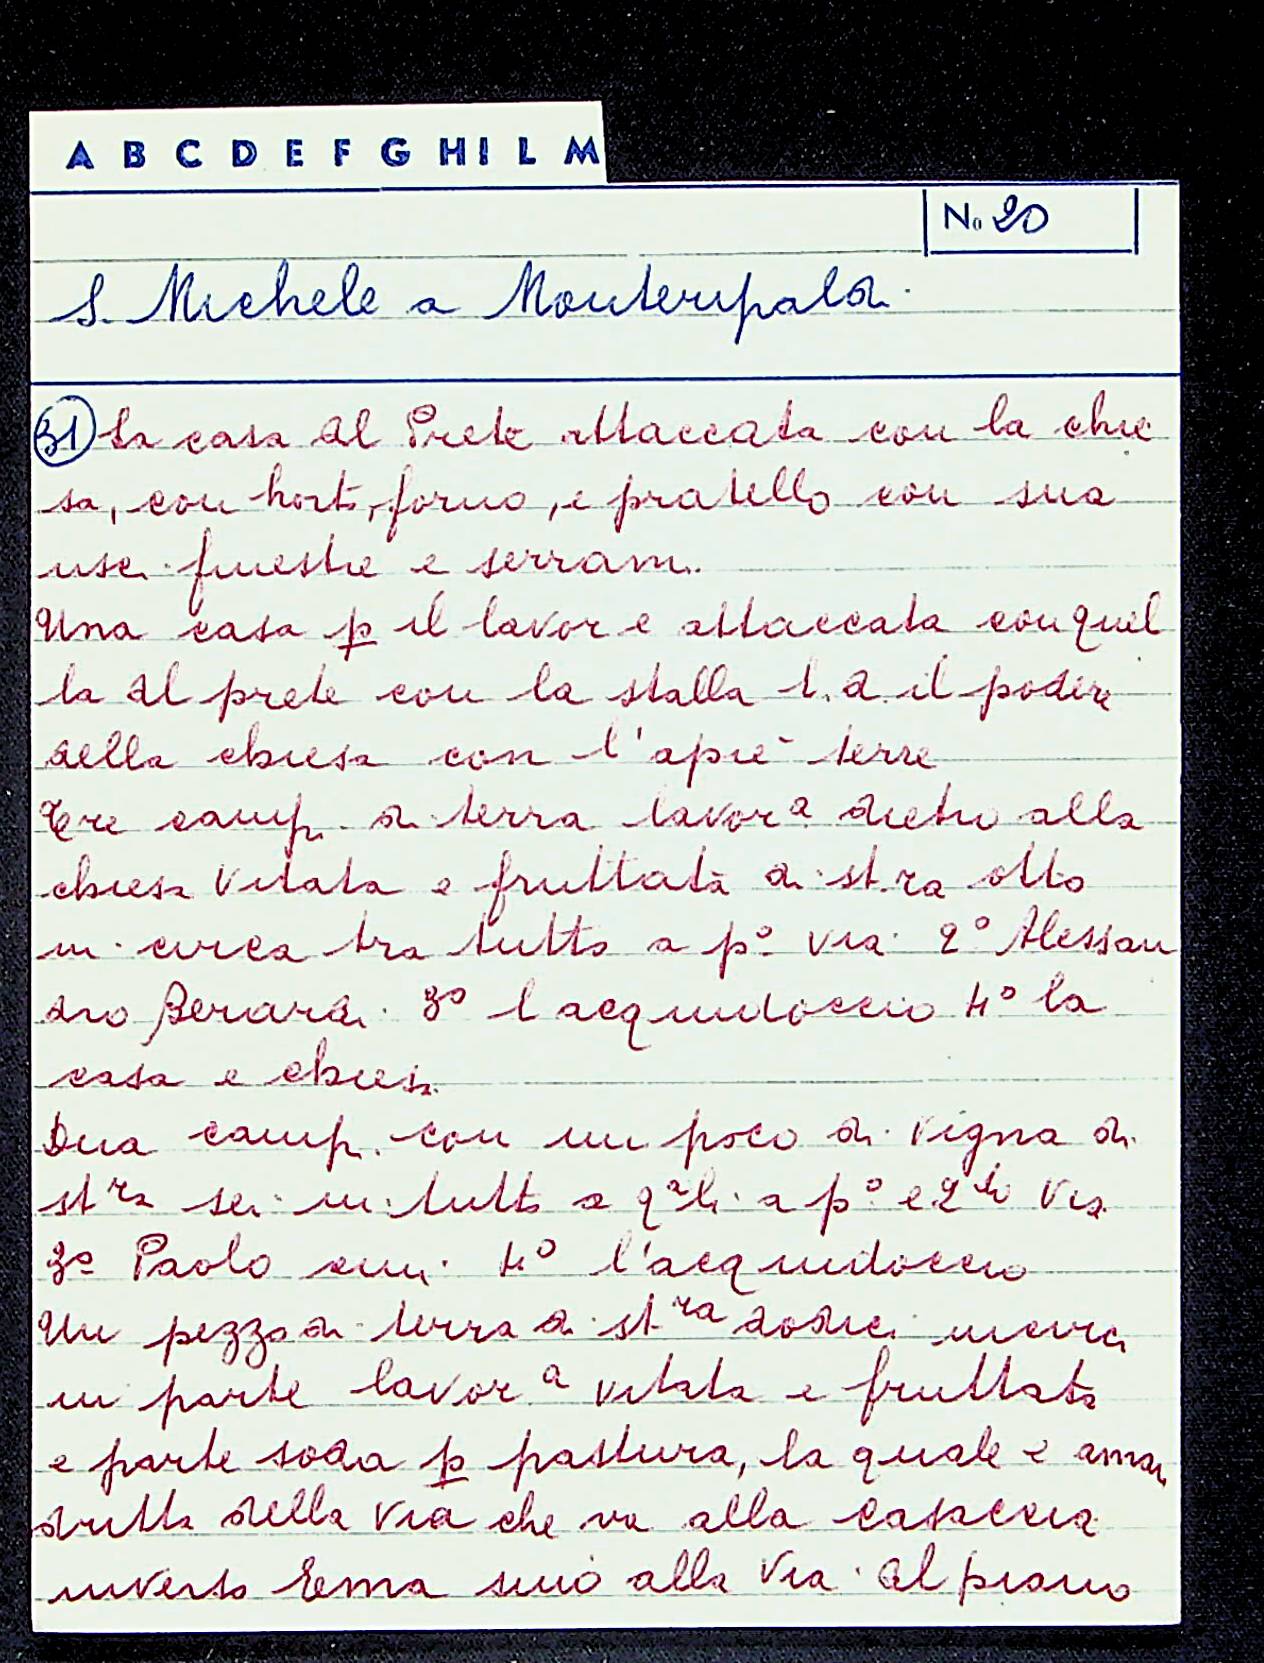 A B C D E F G H I L M
No 20
S. Michele a Monteripaldi.
31 La casa del Prete attaccata con la chie
sa, con horto, forno, e pratello con sua
usci finestre e serrami.
Una casa p il lavore attaccata con quel
la del prete con la stalla t.a. il podere
della chiesa con l'apiè terre
Tre campi di terra lavor.a dietro alla
chiesa vitata e fruttata di st.ra otto
in circa tra tutto a p.o via. 2o Alessan
dro Berardi. 3o l acquidoccio 4o la
casa e chiesa
Dua campi con un poco di vigna di
st ra sei in tutto a q.li a p.o e 2do Via
3o Paolo 4o l'acquidoccio
Un pezzo di terra di st ra dodici incirca
in parte lavor.a vitata e fruttata
e parte soda p pastura, la quale è aman
dritta della via che va alla casaccia
inverso Ema sino alla Via del piano